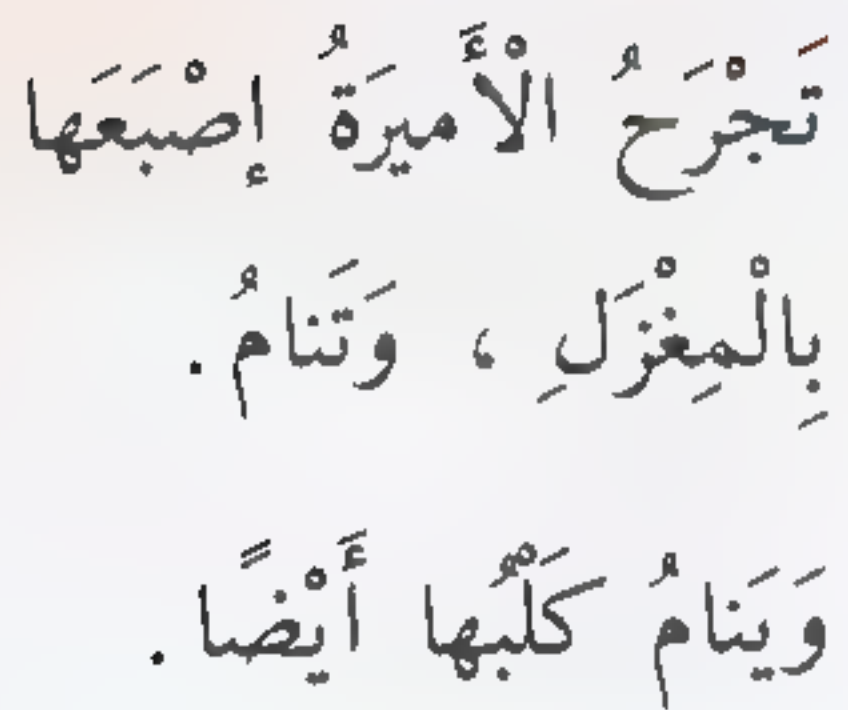 تَجْرَحُ الْأَميرَةُ إِصْبَعَها
بِالْمِغْزَلِ ، وَتَنامُ .
وَيَنامُ كَلْبُها أَيْضًا .